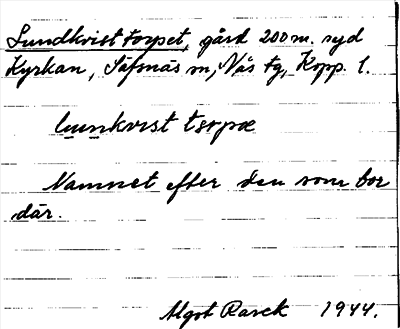 Lundkvisttorpet, gård 200 m. syd
Kyrkan, Säfsnäs sn, Nås tg, Kopp. l.
lunkvist tɛrpæ
Namnet efter den som bor
där.
Algot Rasck 1944.